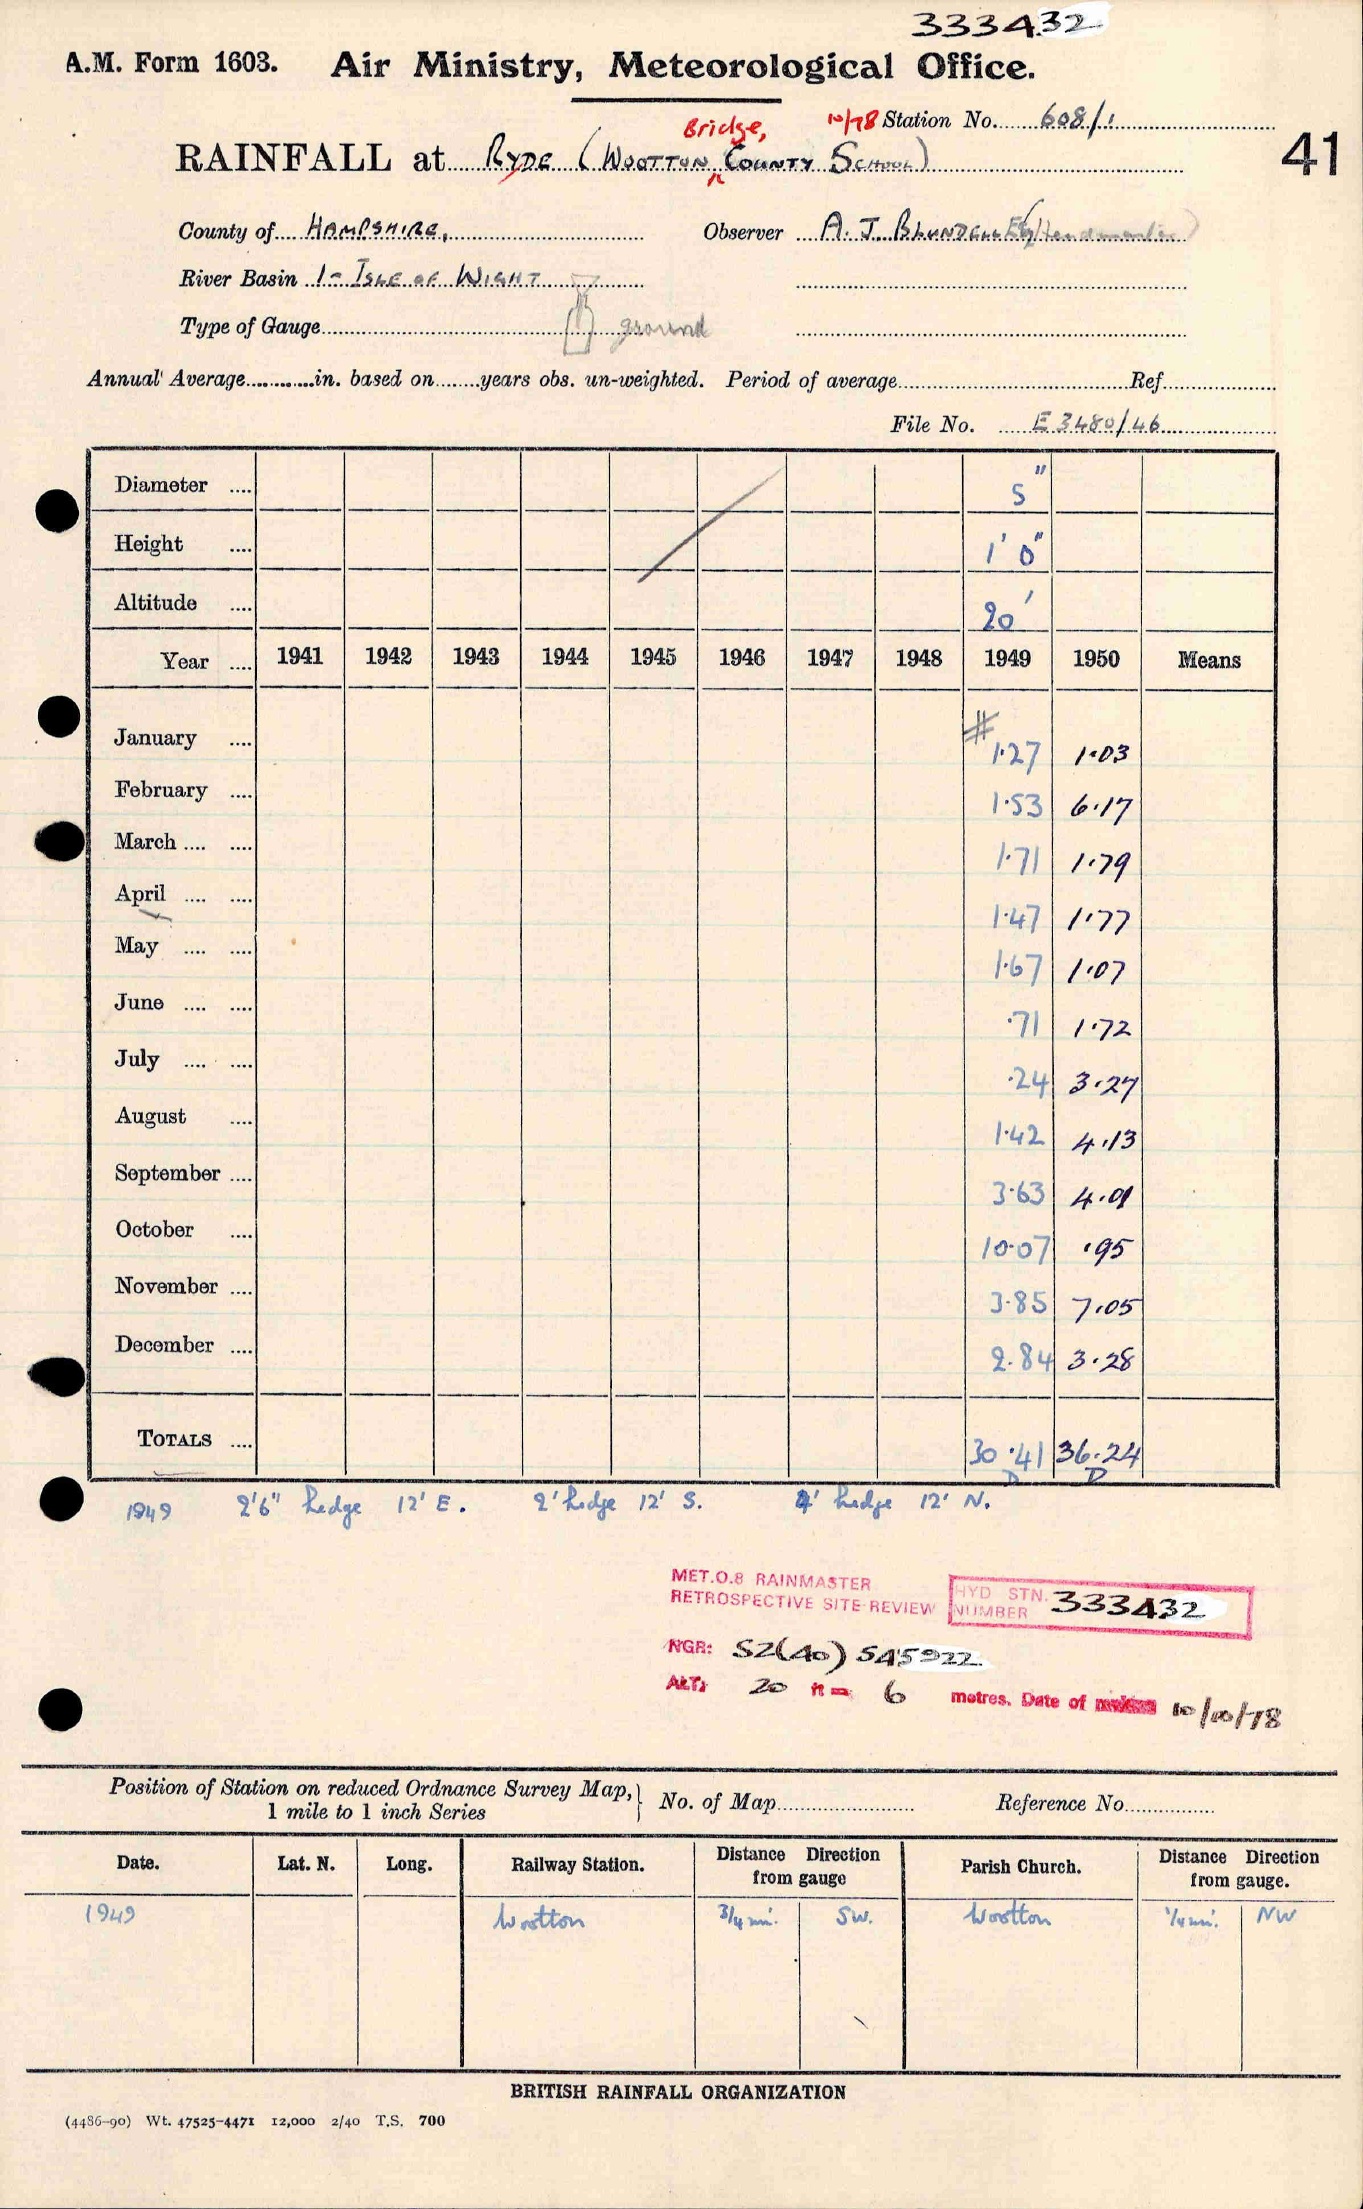 333432
A.M. Form 1603. Air Ministry, Meteorological Office.
Bridge, 10/78 Station No. 608/1
RAINFALL at RYDE (WOOTTON COUNTY SCHOOL) 41
County of HAMPSHIRE, Observer A. J. BLUNDELL Esq (Headmaster)
River Basin 1 - ISLE OF WIGHT
Type of Gauge ground
Annual Average............in. based on.......years obs. un-weighted. Period of average Ref.
File No. E 3480/46
Diameter .... 5"
Height .... 1' 0"
Altitude .... 20'
Year .... 1941 1942 1943 1944 1945 1946 1947 1948 1949 1950 Means
January .... # 1.27 1.03
February .... 1.53 6.17
March .... .... 1.71 1.79
April .... .... 1.47 1.77
May .... .... 1.67 1.07
June .... .... .71 1.72
July .... .... .24 3.27
August .... 1.42 4.13
September .... 3.63 4.01
October .... 10.07 .95
November .... 3.85 7.05
December .... 2.84 3.28
TOTALS .... 30.41 36.24
D D
1949 2'6" hedge 12' E. 2' hedge 12' S. 4' hedge 12' N.
MET.O.8 RAINMASTER
RETROSPECTIVE SITE REVIEW
HYD STN. NUMBER 333432
NGR: SZ(40) 545922
ALT: 20 ft = 6 metres. Date of 10/10/78
Position of Station on reduced Ordnance Survey Map, 1 mile to 1 inch Series } No. of Map Reference No.
Date. Lat. N. Long. Railway Station. Distance Direction from gauge Parish Church. Distance Direction from gauge.
1949 Wootton 3/4 mi. SW. Wootton 1/4 mi. NW
BRITISH RAINFALL ORGANIZATION
(4486-90) Wt. 47525-4471 12,000 2/40 T.S. 700